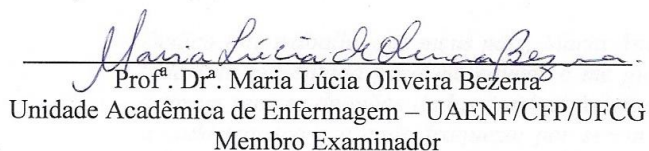 Maria Lúcia de Oliveira Bezerra.
Profª. Drª. Maria Lúcia Oliveira Bezerra
Unidade Acadêmica de Enfermagem – UAENF/CFP/UFCG
Membro Examinador